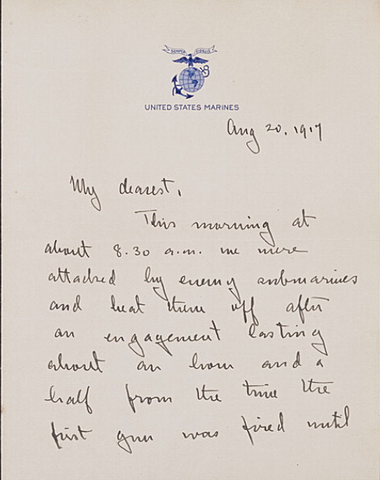 SEMPER FIDELIS
UNITED STATES MARINES
Aug 20, 1917
My dearest,
This morning at
about 8.30 a.m. we were
attacked by enemy submarines
and beat them off after
an engagement lasting
about an hour and a
half from the time the
first gun was fired until